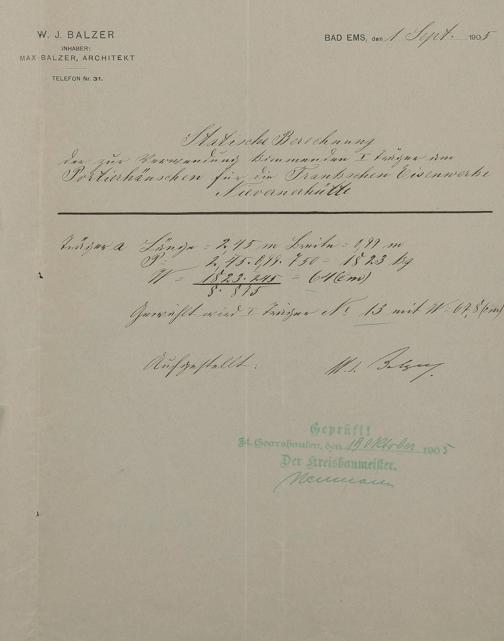 W. J. BALZER
INHABER:
MAX BALZER, ARCHITEKT
TELEFON Nr. 31.
BAD EMS, den 1 Sept. 1905
Statische Berechnung
der zur Verwendung kommenden I Träger am
Portierhäuschen für die Frankschen Eisenwerke
Nievernerhütte
Träger a Länge = 2,45 m Breite = 0,99 m
P = 2,45 . 0,99 . 750 = 1823 kg
W = 1823 . 245 = 64 (cm)
8 . 875
Gewählt wird I Träger No 13 mit W. 67,8 (cm)
Aufgestellt:
W. J. Balzer
Geprüft!
St. Goarshausen, den 19 Oktober 1905
Der Kreisbaumeister.